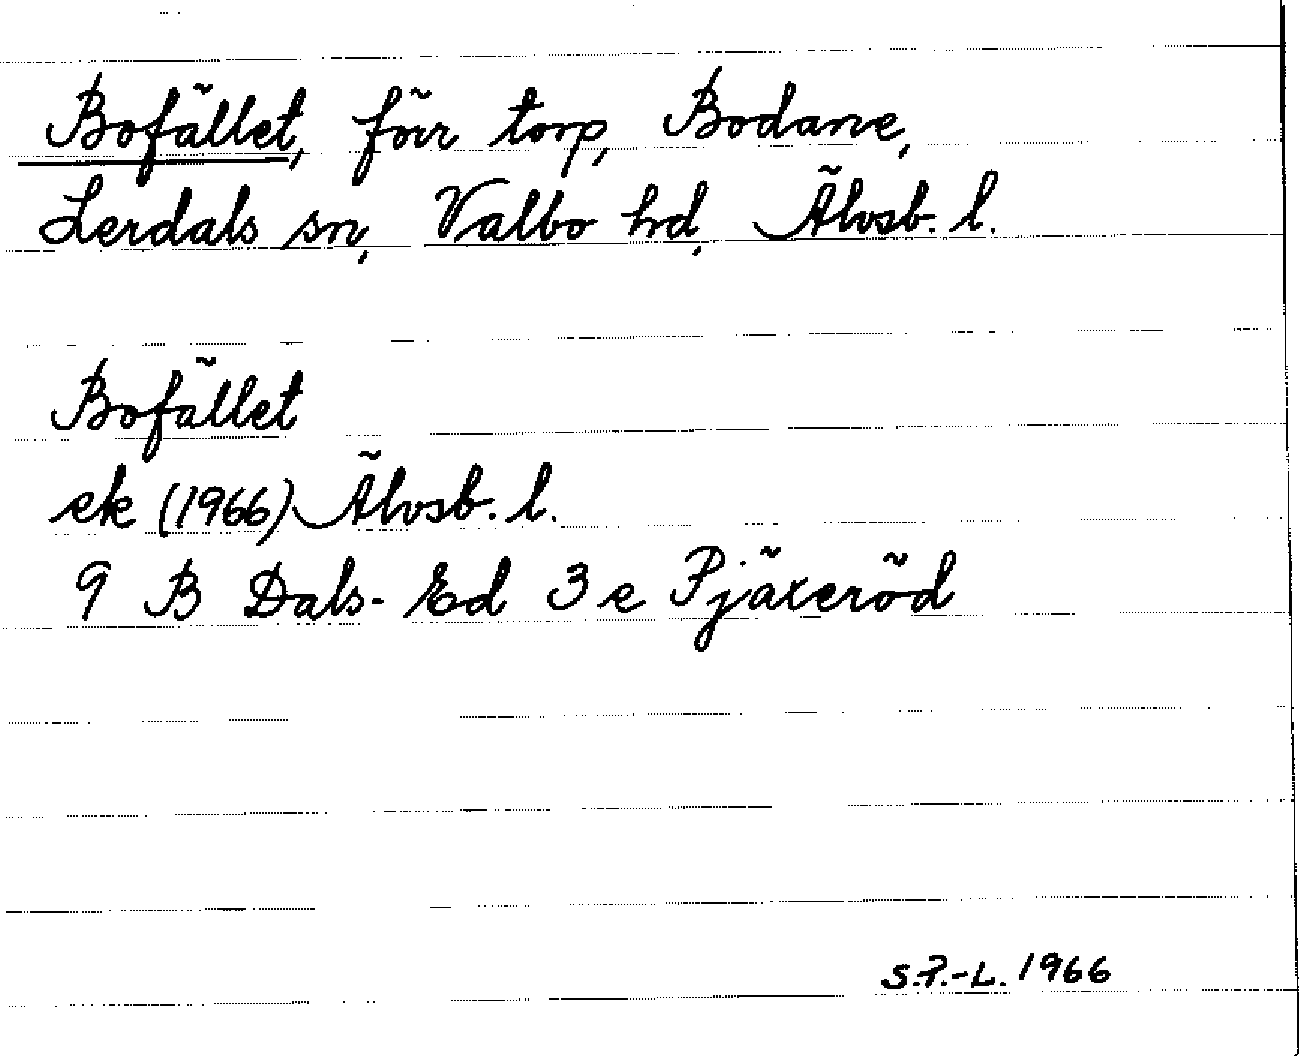 Bofället, förr torp, Bodane,
Lerdals sn, Valbo hd, Älvsb. l.
Bofället
ek (1966) Älvsb. l.
9 B Dals-Ed 3 e Pjäxeröd
S.P.-L. 1966